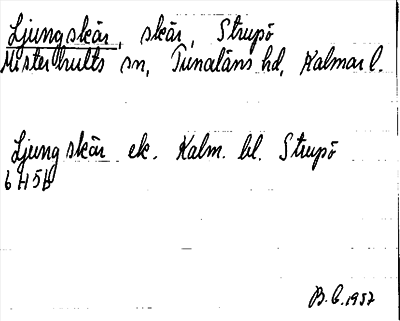 Ljungskär, skär, Strupö
Misterhults sn, Tunaläns hd, Kalmar l.
Ljungskär ek. Kalm. bl. Strupö
6 H 5 b
B.C. 1957